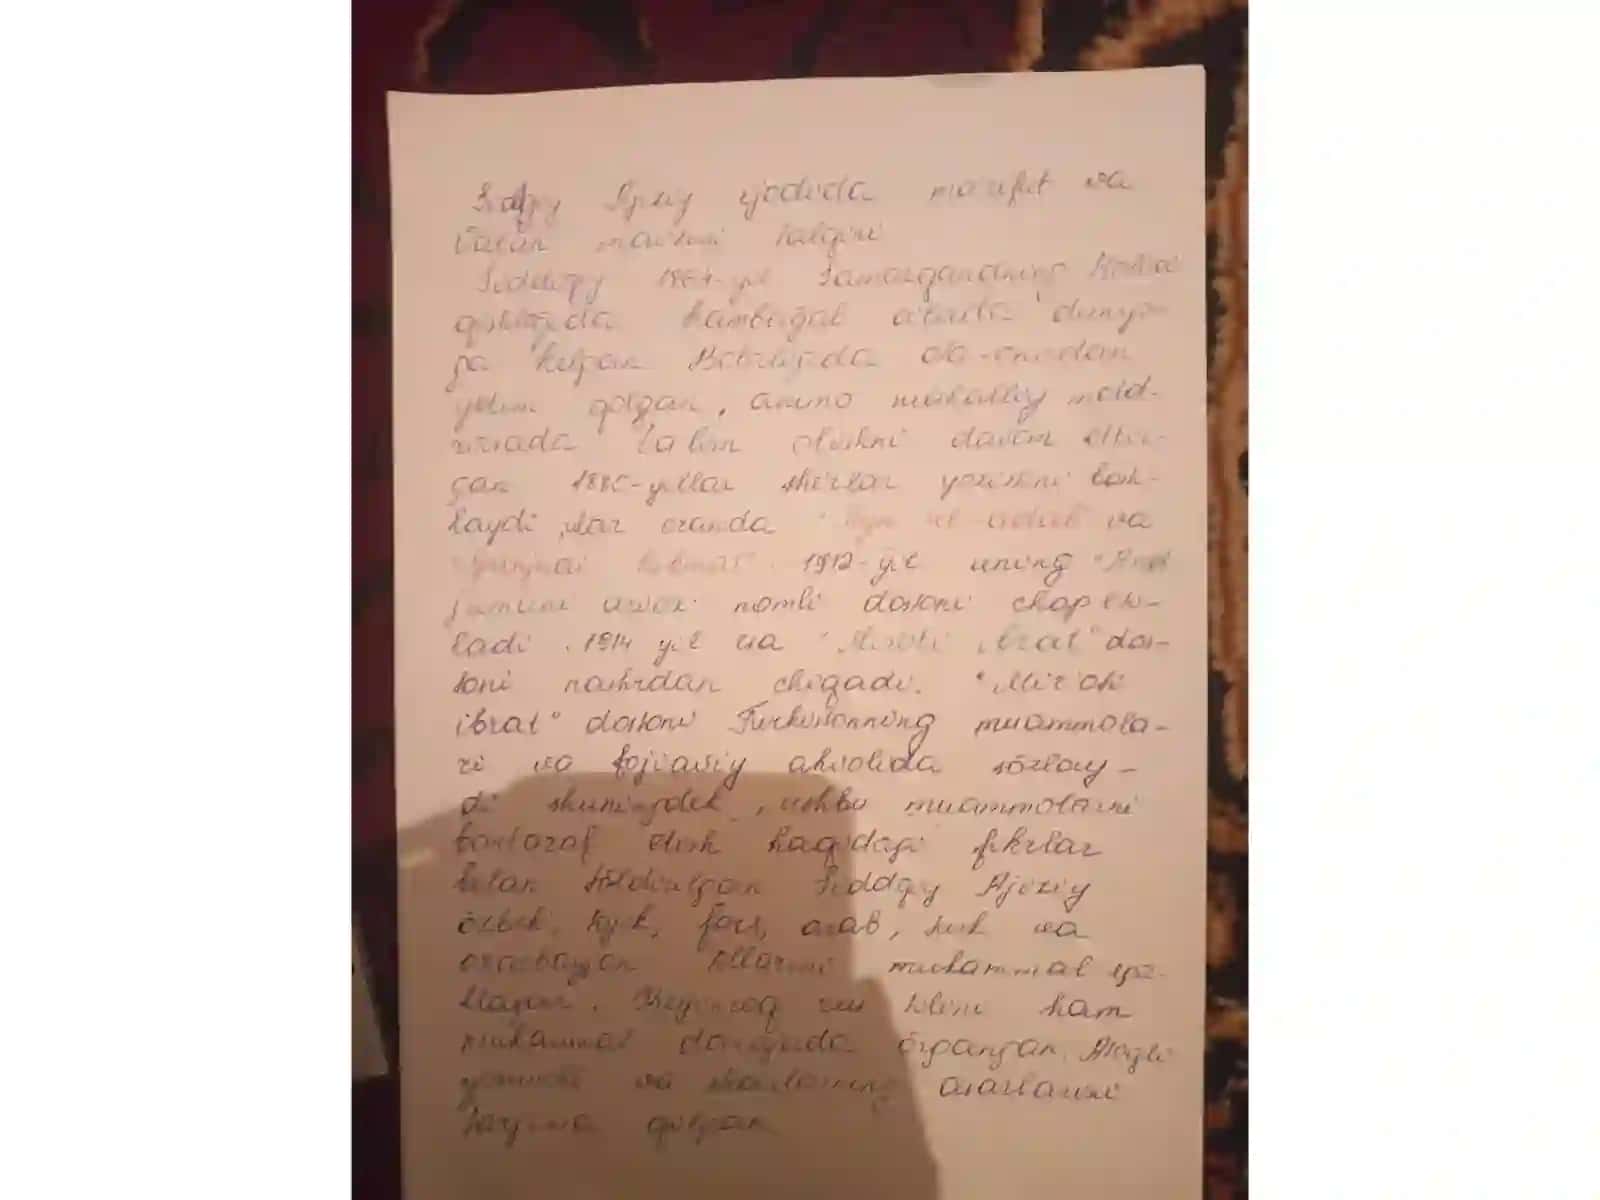 Siddiqiy Ajziy ijodida ma'rifat va
Vatan mavzusi talqini
Siddiqiy 1864-yil Samarqandning
qishlog'ida kambag'al oilada dunyo-
ga kelgan Bolaligida ota-onadan
yetim qolgan, ammo mahalliy mad-
rasada ta'lim olishni davom ettir-
gan 1880-yillar she'rlar yozishni bosh-
laydi ular orasida va
1912-yil uning
nomli dostoni chop eti-
ladi. 1914 yil va "Miroti ibrat" dos-
toni nashrdan chiqadi. "Mir'oti
ibrat" dostoni Turkistonning muammola-
ri va fojiaviy ahvolida sözlay-
di shuningdek, ushbu muammolarni
bartaraf etish haqidagi fikrlar
bilan töldirilgan Siddiqiy Ajiziy
özbek, tojik, fors, arab, turk va
ozarbayjon tillarini mukammal
Keyinroq rus tilini ham
mukammal darajada örgangan.
yozuvchi va shoirlarning asarlarini
tarjima qilgan